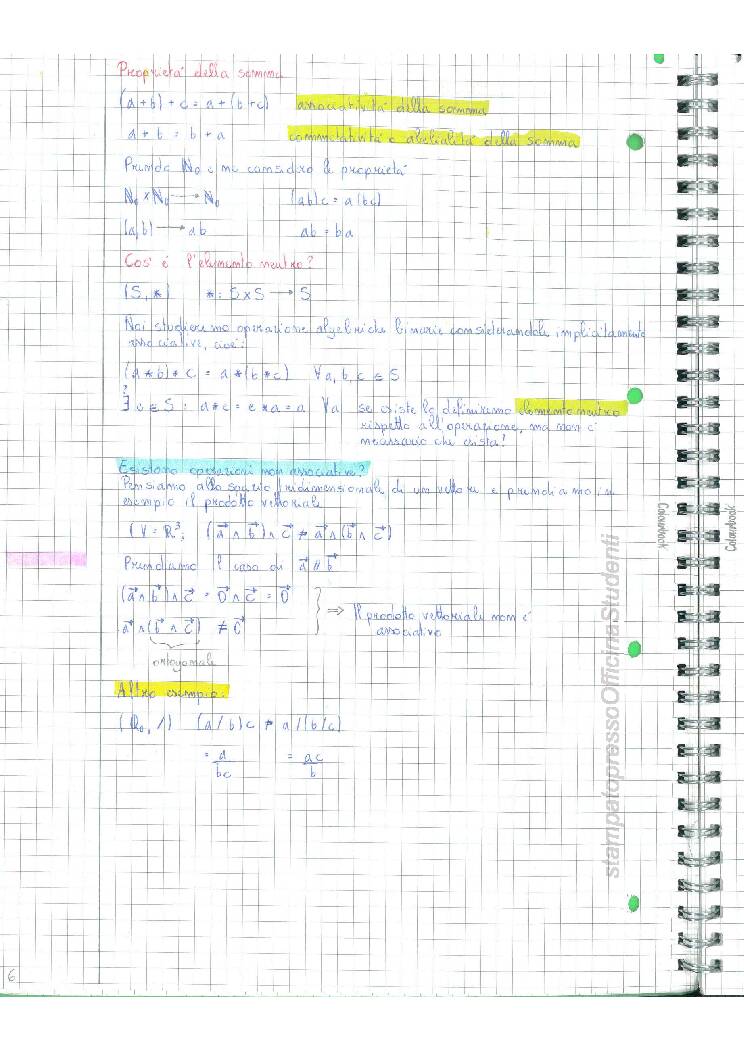 Proprietà della somma
(a+b)+c = a+(b+c) associatività della somma
a+b = b+a commutatività o abelialità della somma
Prendo ℕ₀ e me considero le proprietà
ℕ₀ × ℕ₀ → ℕ₀ (ab)c = a(bc)
(a,b) → ab ab = ba
Cos'è l'elemento neutro?
(S,*) *: S×S → S
Noi studieremo operazione algebriche binarie considerandole implicitamente
associative, cioè:
(a*b)*c = a*(b*c) ∀a,b,c ∈ S
?
∃ e ∈ S : a*e = e*a = a ∀a se esiste lo definiremo elemento neutro
rispetto all'operazione, ma non è
necessario che esista!
Esistono operazioni non associative?
Pensiamo allo spazio tridimensionale di un vettore e prendiamo in
esempio il prodotto vettoriale
V = ℝ³; (a⃗ ∧ b⃗) ∧ c⃗ ≠ a⃗ ∧ (b⃗ ∧ c⃗)
Prendiamo il caso di a⃗ // b⃗
(a⃗ ∧ b⃗) ∧ c⃗ = 0⃗ ∧ c⃗ = 0⃗
⇒ Il prodotto vettoriale non è
associativo
a⃗ ∧ (b⃗ ∧ c⃗) ≠ 0⃗
ortogonale
Altro esempio:
(ℝ₀, /) (a/b)/c ≠ a/(b/c)
= a/bc = ac/b
6
Colourbook
Colourbook
stampatopressoOfficinaStudenti